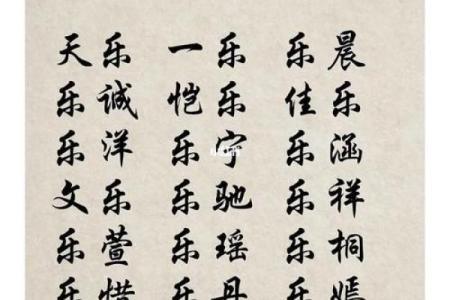 天乐 一乐 乐晨
乐诚 恺乐 佳乐
乐洋 乐宁 乐涵
文乐 乐驰 乐祥
乐萱 乐瑶 乐桐
乐惜 乐丹 乐嫣